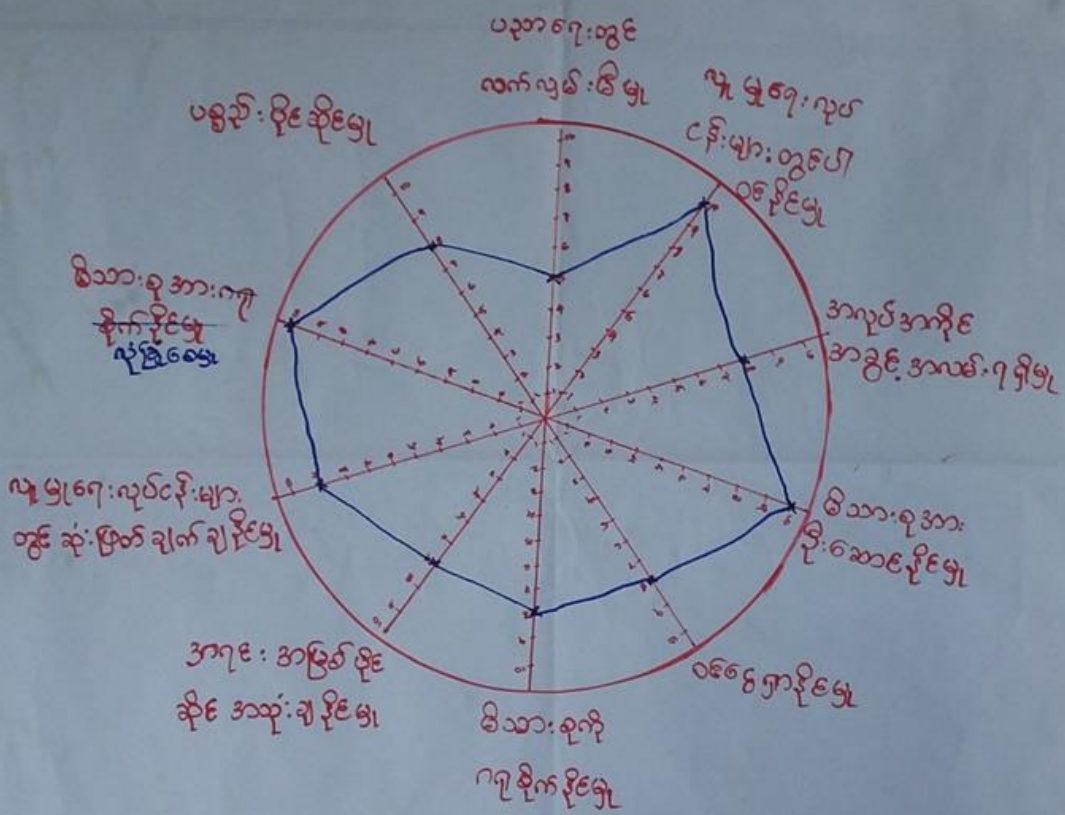 ပညာရေးတွင်
လက်လှမ်းမီမှု
လူမှုရေးလုပ်
ငန်းများတွင်ပါ
ဝင်နိုင်မှု
အလုပ်အကိုင်
အခွင့်အလမ်းရရှိမှု
မိသားစုအား
ဦးဆောင်နိုင်မှု
ဝင်ငွေရှာနိုင်မှု
မိသားစုကို
ဂရုစိုက်နိုင်မှု
အရင်းအမြစ်ပိုင်
ဆိုင်အသုံးချနိုင်မှု
လူမှုရေးလုပ်ငန်းများ
တွင်ဆုံးဖြတ်ချက်ချနိုင်မှု
မိသားစုအားဂရု
စိုက်နိုင်မှု
လုံခြုံစေမှု
ပစ္စည်းပိုင်ဆိုင်မှု